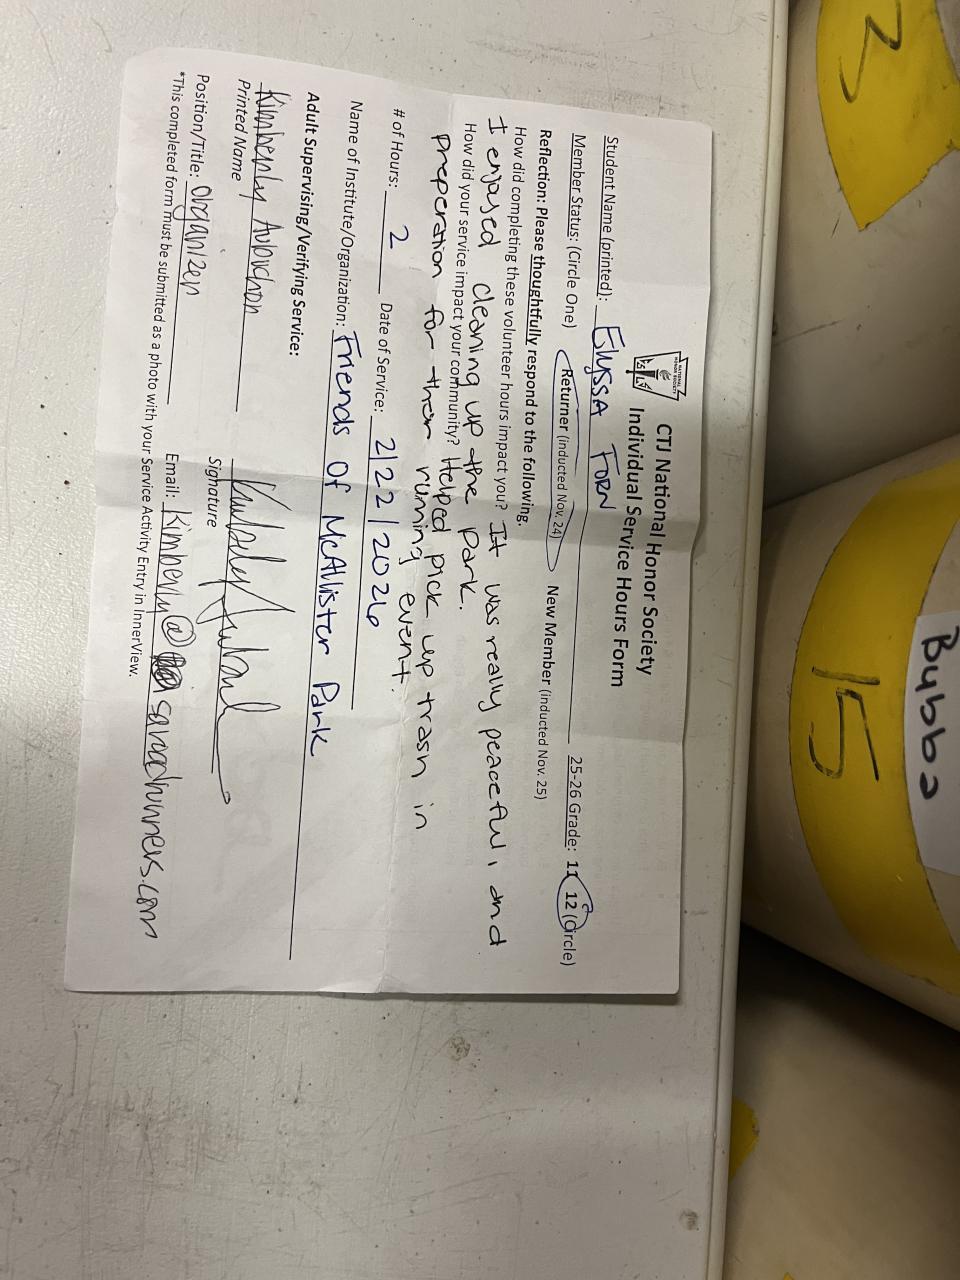 NATIONAL
HONOR SOCIETY
CTJ National Honor Society
Individual Service Hours Form
Student Name (printed): Elyssa Forn 25-26 Grade: 11 12 (Circle)
Member Status: (Circle One) Returner (inducted Nov. 24) New Member (inducted Nov. 25)
Reflection: Please thoughtfully respond to the following.
How did completing these volunteer hours impact you? It was really peaceful, and
I enjoyed cleaning up the park.
How did your service impact your community? Helped pick up trash in
preperation for their running event.
# of Hours: 2 Date of Service: 2/22/2026
Name of Institute/Organization: Friends Of McAllister Park
Adult Supervising/Verifying Service:
Kimberly
Printed Name Signature
Position/Title: Organizer Email: Kimberly@
*This completed form must be submitted as a photo with your Service Activity Entry in InnerView.
3
15
Bubba